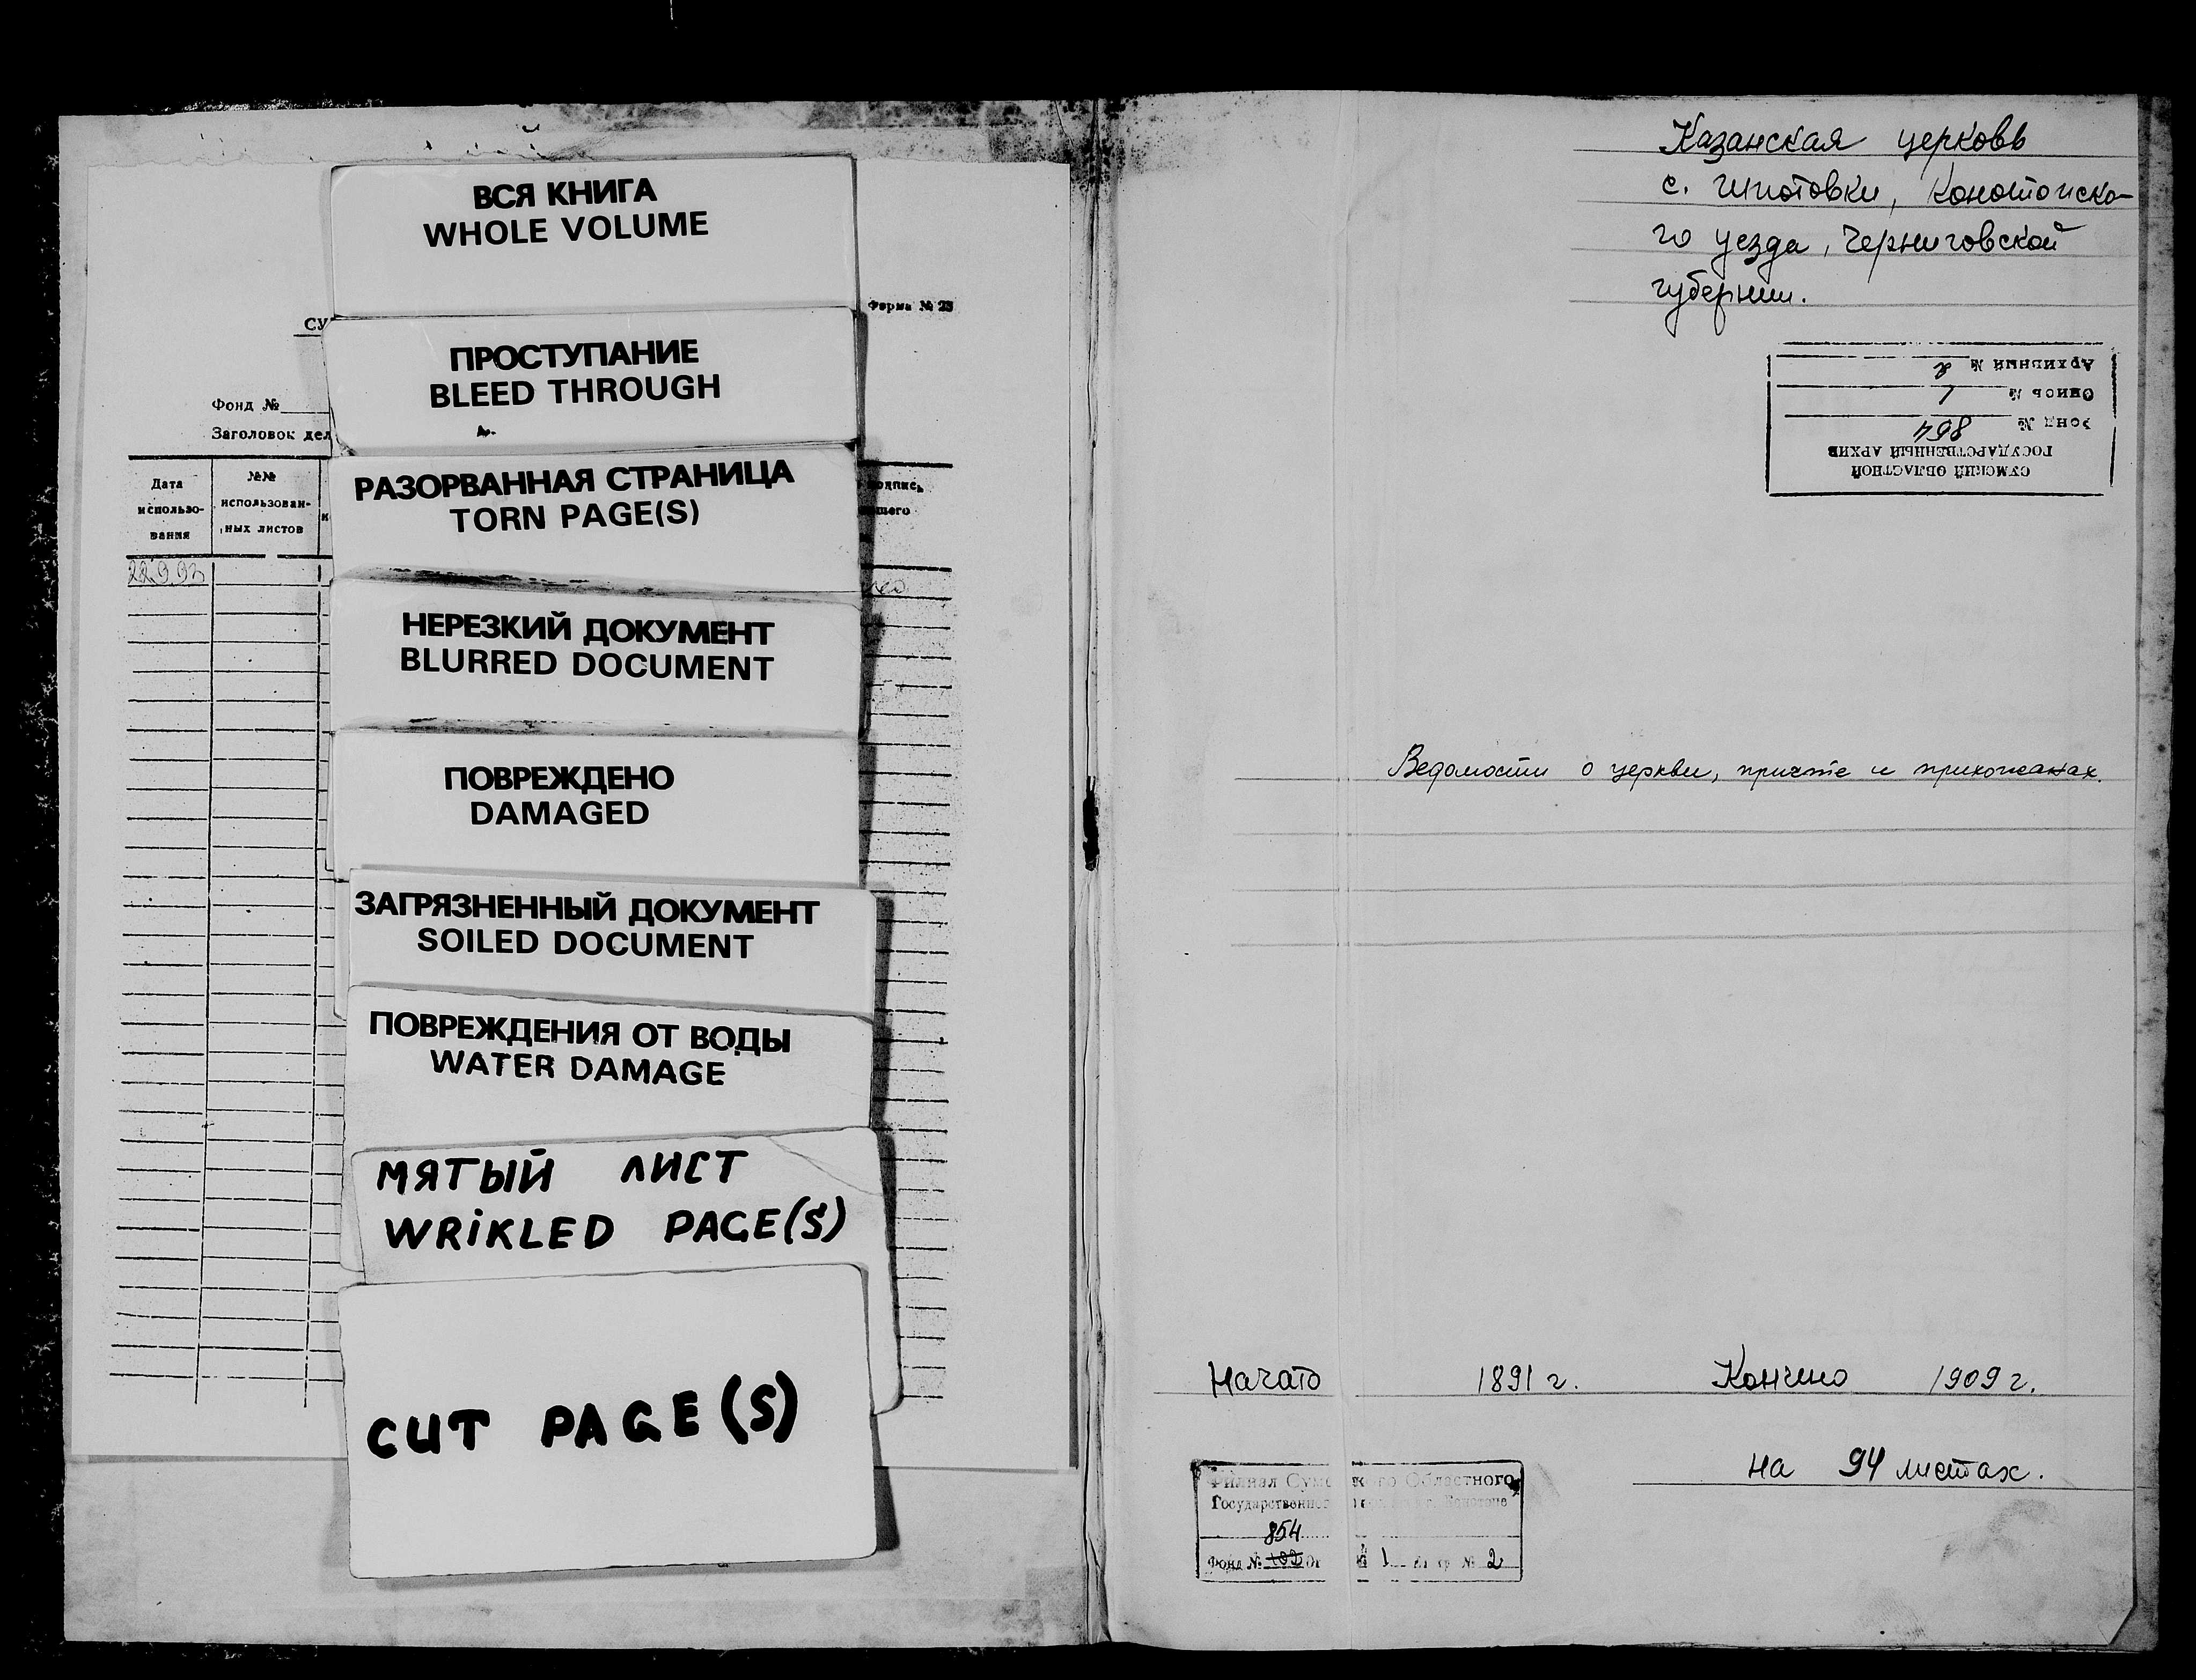 ВСЯ КНИГА
WHOLE VOLUME
Форма № 23
СУ
ПРОСТУПАНИЕ
BLEED THROUGH
Фонд №
Заголовок дел
РАЗОРВАННАЯ СТРАНИЦА
TORN PAGE(S)
Дата
использо-
вания
№№
использован-
ных листов
22.9.93
НЕРЕЗКИЙ ДОКУМЕНТ
BLURRED DOCUMENT
ПОВРЕЖДЕНО
DAMAGED
ЗАГРЯЗНЕННЫЙ ДОКУМЕНТ
SOILED DOCUMENT
ПОВРЕЖДЕНИЯ ОТ ВОДЫ
WATER DAMAGE
МЯТЫЙ ЛИСТ
WRIKLED PAGE(S)
CUT PAGE(S)
Казанская церковь
с. Шпотовки, Конотопско-
го уезда, Черниговской
губернии.
СУМСКИЙ ОБЛАСТНОЙ
ГОСУДАРСТВЕННЫЙ АРХИВ
Фонд № 854
Опись № 1
Архивный № 2
Ведомости о церкви, причте и прихожанах.
Начато 1891 г. Кончено 1909 г.
на 94 листах.
Филиал Сумского Областного
Государственного
854
Фонд № 1 № 2